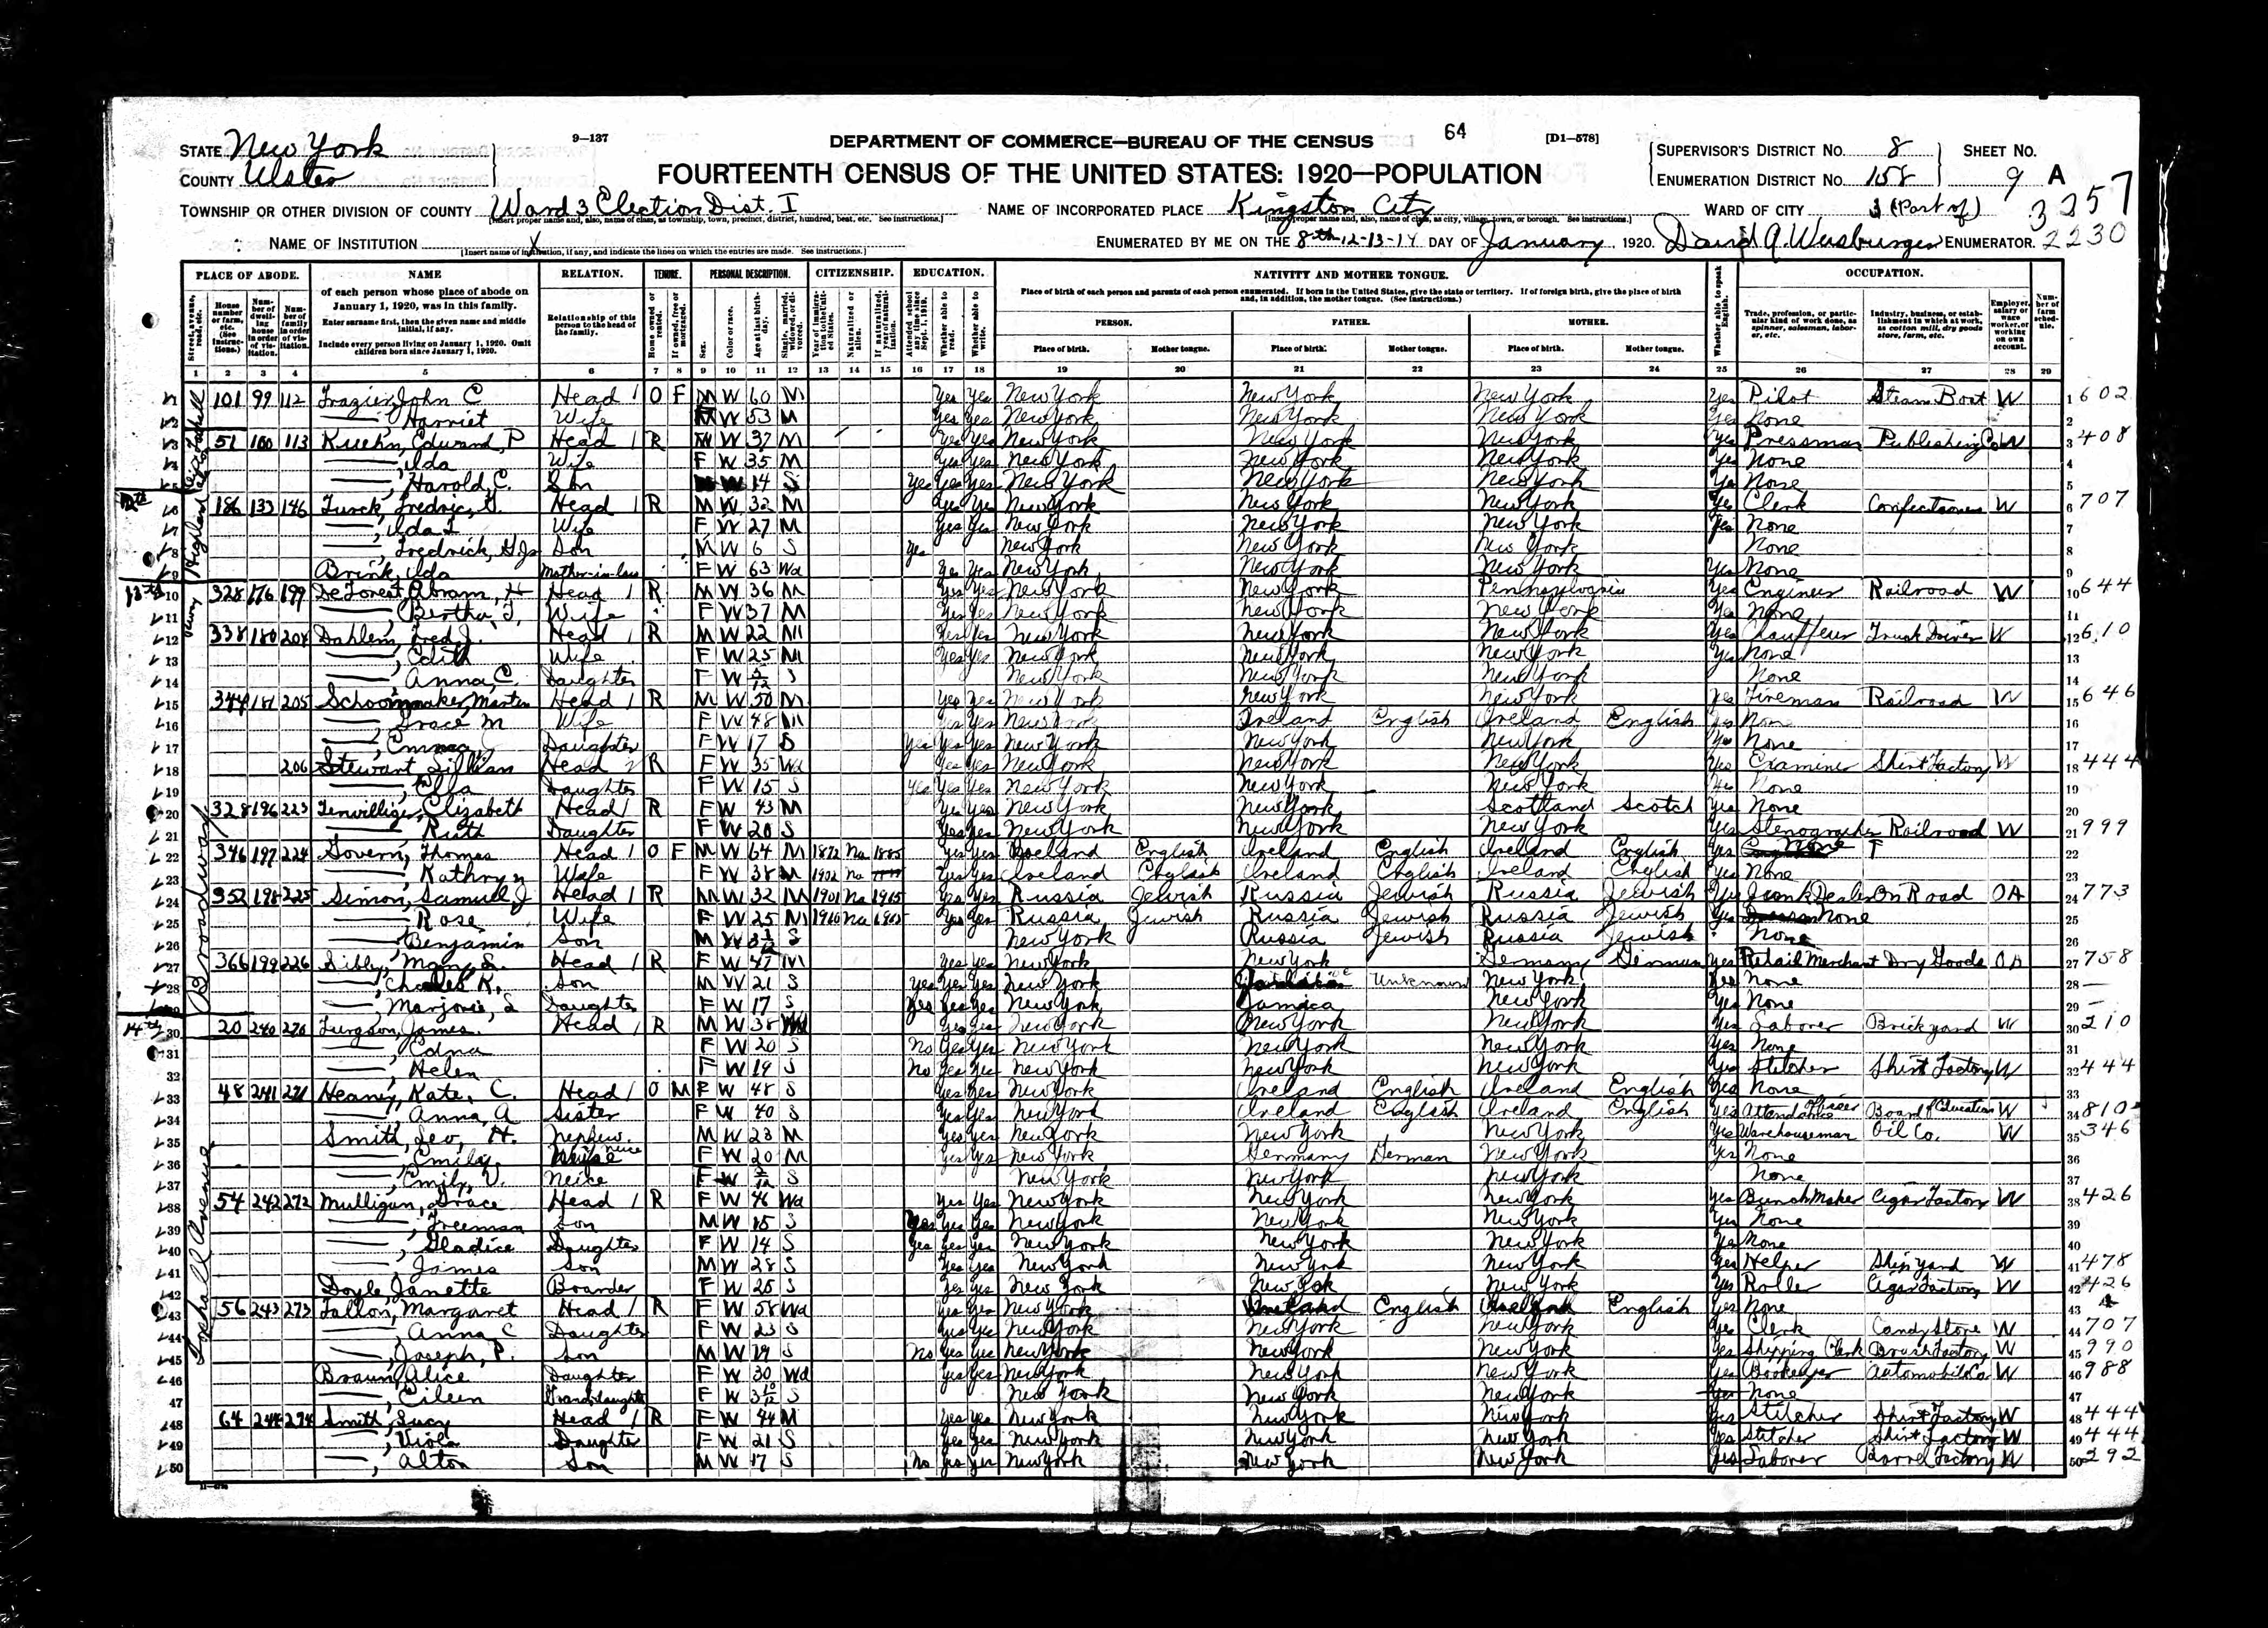 9—137
DEPARTMENT OF COMMERCE—BUREAU OF THE CENSUS
64
[D1—578]
STATE New York
COUNTY Ulster
FOURTEENTH CENSUS OF THE UNITED STATES: 1920—POPULATION
SUPERVISOR'S DISTRICT NO. 8
SHEET NO.
ENUMERATION DISTRICT NO. 158
9 A
3257
TOWNSHIP OR OTHER DIVISION OF COUNTY Ward 3 Election Dist. I
NAME OF INCORPORATED PLACE Kingston City
WARD OF CITY 3 (Part of)
2230
NAME OF INSTITUTION X
ENUMERATED BY ME ON THE 8th-12-13-14 DAY OF January, 1920. ENUMERATOR.
PLACE OF ABODE. NAME RELATION. TENURE. PERSONAL DESCRIPTION. CITIZENSHIP. EDUCATION. NATIVITY AND MOTHER TONGUE. OCCUPATION.
of each person whose place of abode on January 1, 1920, was in this family.
Enter surname first, then the given name and middle initial, if any.
Include every person living on January 1, 1920. Omit children born since January 1, 1920.
Relationship of this person to the head of the family.
Place of birth of each person and parents of each person enumerated. If born in the United States, give the state or territory. If of foreign birth, give the place of birth and, in addition, the mother tongue. (See instructions.)
PERSON. FATHER. MOTHER.
Place of birth. Mother tongue. Place of birth. Mother tongue. Place of birth. Mother tongue.
1 2 3 4 5 6 7 8 9 10 11 12 13 14 15 16 17 18 19 20 21 22 23 24 25 26 27 28 29
101 99 112 Frazier, John C Head 1 O F M W 60 M Yes Yes New York New York New York Yes Pilot Steam Boat W 1 602
Harriet Wife W 53 M Yes Yes New York New York New York Yes None 2
51 100 113 Kuehn, Edward, P Head 1 R M W 37 M Yes Yes New York New York New York Yes Pressman Publishing Co W 3 408
, Ida Wife F W 35 M Yes Yes New York New York New York Yes None 4
, Harold, C. Son 14 S Yes Yes Yes New York New York New York Yes None 5
12th 186 133 146 Turck, Fredric, G. Head 1 R M W 32 M Yes Yes New York New York New York Yes Clerk W 6 707
, Ida Wife F W 27 M Yes Yes New York New York New York Yes None 7
, Fredrick, H. Jr Son M W 6 S Yes New York New York New York None 8
Brink, Ida Mother-in-law F W 63 Wd Yes Yes New York New York New York Yes None 9
13th 328 176 199 DeForest, Abram, H Head 1 R M W 36 M Yes Yes New York New York Pennsylvania Yes Engineer Railroad W 10 644
, Bertha, J. Wife F W 37 M Yes Yes New York New York New York Yes None 11
338 180 204 Dahlem, Fred J. Head 1 R M W 22 M Yes Yes New York New York New York Yes Chauffeur Truck Driver W 12 610
, Edith Wife F W 25 M Yes Yes New York New York New York Yes None 13
, Anna, C. Daughter F W S New York New York New York None 14
344 181 205 Schoonmaker, Martin Head 1 R M W 50 M Yes Yes New York New York New York Yes Fireman Railroad W 15 646
, Grace M Wife F W 48 M Yes Yes New York Ireland English Ireland English Yes None 16
, Emma Daughter F W 17 S Yes Yes Yes New York New York New York Yes None 17
206 Stewart, Lillian Head 2 R F W 35 Wd Yes Yes New York New York New York Yes Examiner Shirt Factory W 18 444
, Ella Daughter F W 15 S Yes Yes Yes New York New York New York Yes None 19
Broadway 328 196 223 Terwilliger, Elizabeth Head 1 R F W 43 M Yes Yes New York New York Scotland Scotch Yes None 20
, Ruth Daughter F W 20 S Yes Yes New York New York New York Yes Stenographer Railroad W 21 999
346 197 224 Govern, Thomas Head 1 O F M W 64 M 1872 Na 1885 Yes Yes Ireland English Ireland English Ireland English Yes None 22
, Kathryn Wife F W 38 M 1902 Na Yes Yes Ireland English Ireland English Ireland English Yes None 23
352 198 225 Simon, Samuel J Head 1 R M W 32 M 1901 Na 1905 Yes Yes Russia Jewish Russia Jewish Russia Jewish Yes Junk Dealer On Road OA 24 773
, Rose Wife F W 25 M Na Yes Yes Russia Jewish Russia Jewish Russia Jewish Yes None 25
Benjamin Son M W S New York Russia Jewish Russia Jewish None 26
366 199 226 Sibly, Head 1 R F W 47 M Yes Yes New York New York Germany German Yes Retail Merchant Dry Goods OA 27 758
, Charles K. Son M W 21 S Yes Yes Yes New York Unknown New York Yes None 28
, Marjorie, S Daughter F W 17 S Yes Yes Yes New York Jamica New York Yes None 29
14th 20 240 270 Furgson, James Head 1 R M W 38 Wd Yes Yes New York New York New York Yes Laborer Brickyard W 30 210
, Edna F W 20 S No Yes Yes New York New York New York Yes None 31
, Helen F W 19 S No Yes Yes New York New York New York Yes Stitcher Shirt Factory W 32 444
48 241 271 Heaney, Kate, C. Head 1 O M F W 48 S Yes Yes New York Ireland English Ireland English Yes None 33
, Anna, A Sister F W 40 S Yes Yes New York Ireland English Ireland English Yes Attendance officer Board of Education W 34 810
Smith, Leo, H. Nephew. M W 23 M Yes Yes New York New York New York Yes Warehouseman Oil Co. W 35 346
, Emily, Niece F W 20 M Yes Yes New York Germany German New York Yes None 36
, Emily, V. Neice F W S New York New York New York None 37
Foxhall Avenue 54 242 272 Mulligan, Grace Head 1 R F W 46 Wd Yes Yes New York New York New York Yes Bunch Maker Cigar Factory W 38 426
, Freeman Son M W 15 S Yes Yes Yes New York New York New York Yes None 39
, Gladice Daughter F W 14 S Yes Yes Yes New York New York New York Yes None 40
, James Son M W 28 S Yes Yes New York New York New York Yes Helper Ship yard W 41 478
Doyle, Janette Boarder F W 25 S Yes Yes New York New York New York Yes Roller Cigar Factory W 42 426
56 243 273 Fallon, Margaret Head 1 R F W 58 Wd Yes Yes New York English English Yes None 43
, Anna, C Daughter F W 23 S Yes Yes New York New York New York Yes Clerk Candy Store W 44 707
, Joseph, P. Son M W 19 S No Yes Yes New York New York New York Yes Shipping Clerk W 45 990
Braun, Alice Daughter F W 30 Wd Yes Yes New York New York New York Yes Bookeeper Automobile Co W 46 988
, Eileen Granddaughter F W 3 10/12 S New York New York New York None 47
64 244 274 Smith, Lucy Head 1 R F W 44 M Yes Yes New York New York New York Yes Stitcher Shirt Factory W 48 444
, Viola Daughter F W 21 S Yes Yes New York New York New York Yes Stitcher Shirt Factory W 49 444
, Alton Son M W 17 S No Yes Yes New York New York New York Yes Laborer Barrel Factory W 50 292